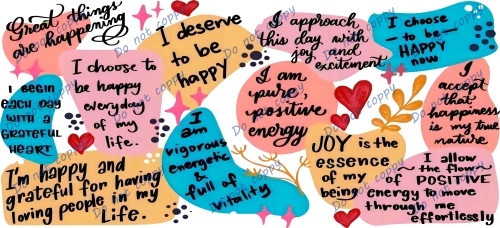 Great things
are happening
I deserve
to be
happy
I approach
this day with
joy and
excitement
I choose
to be
HAPPY
now
I choose to
be happy
everyday
of my
life.
I begin
each day
with a
grateful
heart
I am
pure
positive
energy
I
accept
that
happiness
is my true
nature
I
am
vigorous
energetic
&
full of
vitality
JOY is the
essence
of my
being
I'm happy and
grateful for having
loving people in my
Life.
I allow
the flow
of POSITIVE
energy to move
through me
effortlessly
Do not coppy
Do not coppy
Do not coppy
Do not coppy